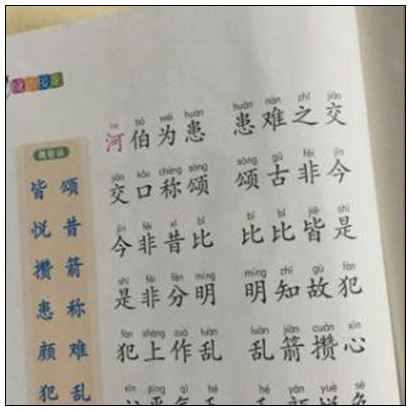 hé bó wéi huàn huàn nàn zhī jiāo
河伯为患 患难之交
jiāo kǒu chēng sòng sòng gǔ fēi jīn
交口称颂 颂古非今
jīn fēi xī bǐ bǐ bǐ jiē shì
今非昔比 比比皆是
shì fēi fēn míng míng zhī gù fàn
是非分明 明知故犯
fàn shàng zuò luàn luàn jiàn cuán xīn
犯上作乱 乱箭攒心
xīn píng qì hé hé yán yuè sè
皆 颂
悦 昔
攒 箭
患 称
颜 难
犯 乱